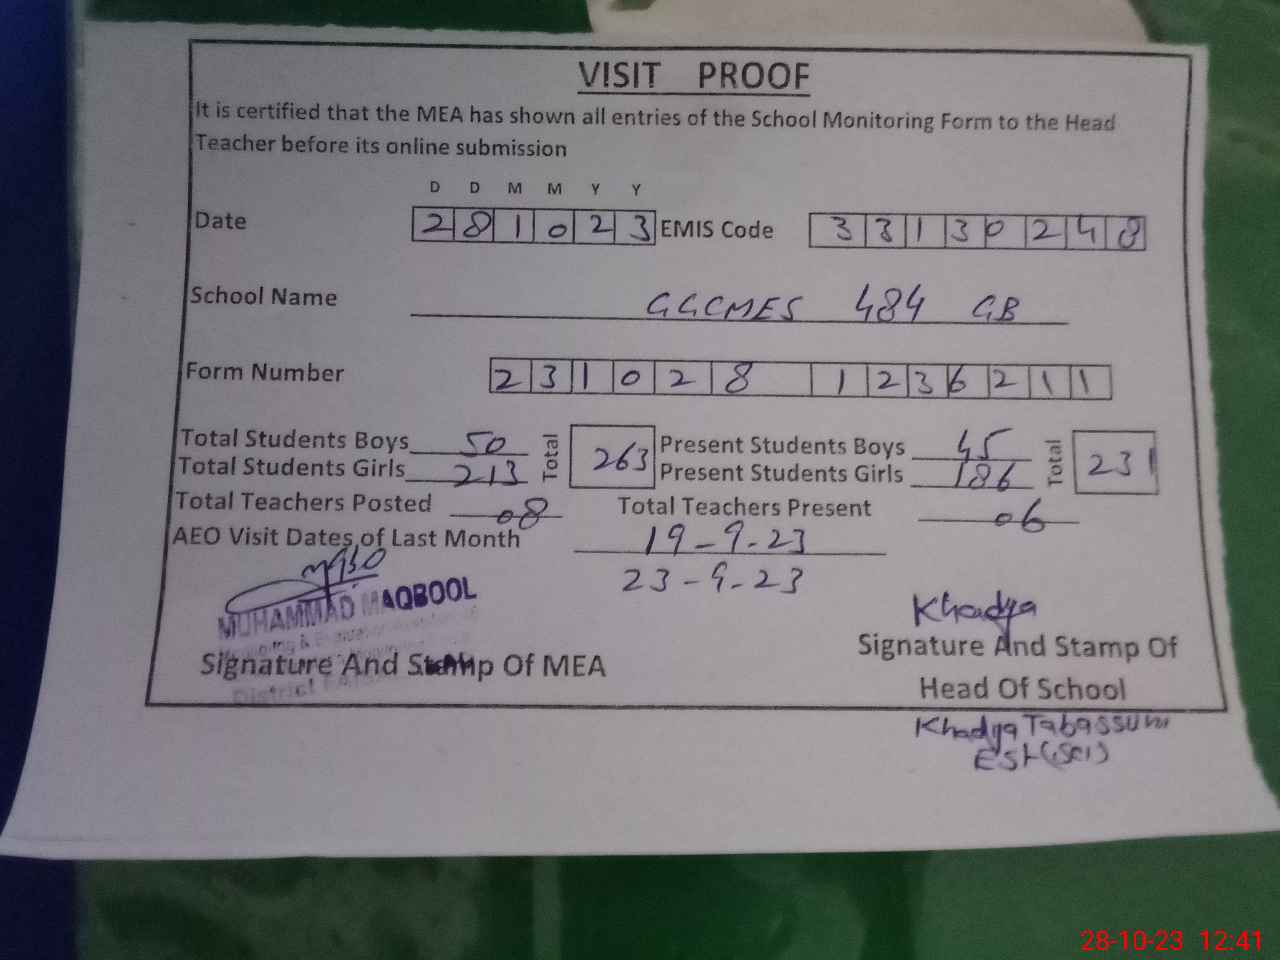 VISIT PROOF
It is certified that the MEA has shown all entries of the School Monitoring Form to the Head
Teacher before its online submission
D D M M Y Y
Date 2 8 1 0 2 3 EMIS Code 3 3 1 3 0 2 4 8
School Name GGCMES 484 GB
Form Number 2 3 1 0 2 8 1 2 3 6 2 1 1
Total Students Boys 50 Total 263 Present Students Boys 45 Total 231
Total Students Girls 213 Present Students Girls 186
Total Teachers Posted 08 Total Teachers Present 06
AEO Visit Dates of Last Month 19-9-23
23-9-23
MUHAMMAD MAQBOOL
Khadija
Signature And Stamp Of MEA
Signature And Stamp Of
District
Head Of School
Khadija Tabassum
EST(Sci)
28-10-23 12:41